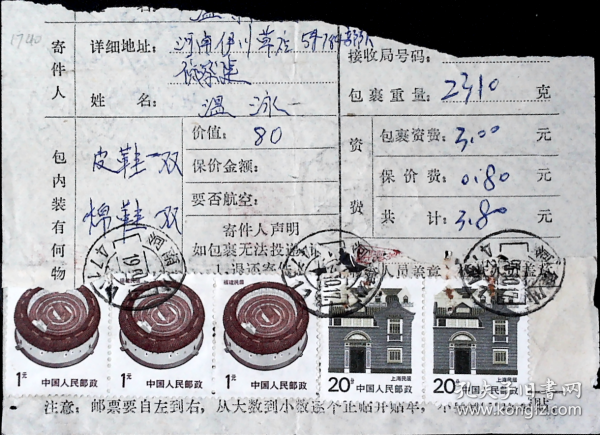 1740
寄件人
详细地址：河南伊川草店
姓 名：温泳一
接收局号码：
包裹重量：2310 克
包内装有何物
皮鞋一双
棉鞋一双
价值：80
保价金额：
要否航空：
寄件人声明
如包裹无法投递
资费
包裹资费：3.00 元
保价费：0.80 元
共 计：3.80 元
福建民居
1元
中国人民邮政
福建民居
1元
中国人民邮政
福建民居
1元
中国人民邮政
20分
上海民居
中国人民邮政
20分
上海民居
中国人民邮政
注意：邮票要自左到右，从大数到小数逐个
孔夫子旧书网
kongfz.com